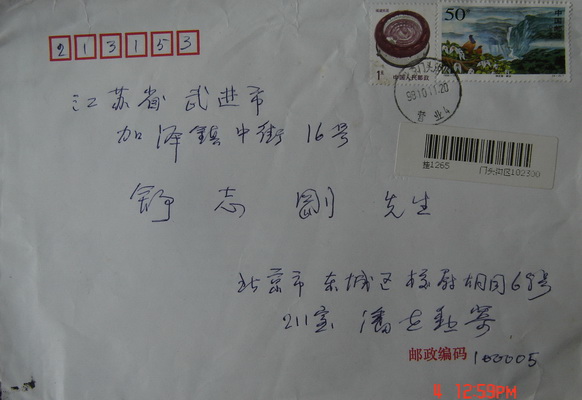 213153
50分
中国
1分
中国人民邮政
江苏省 武进市
加泽镇中街 16号
98.10.11.20
营业
舒志刚 先生
挂1265 门头沟区102300
北京市 东城区 胡同69号
211室 潘 寄
邮政编码 100005
12:59PM